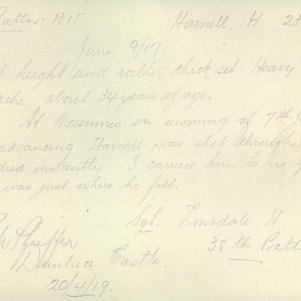 Battn. A.I.F. Harnell. H 23
June 9/17.
d. height and rather thick set. Heavy
ache, about 34 years of age.
At Messines on morning of 7th J
advancing Harnell was shot through
died instantly. I carried him to his
was just where he fell.
Sgt. Lonsdale H
W Pfeiffer 38th Batt
Castle.
20/4/19.